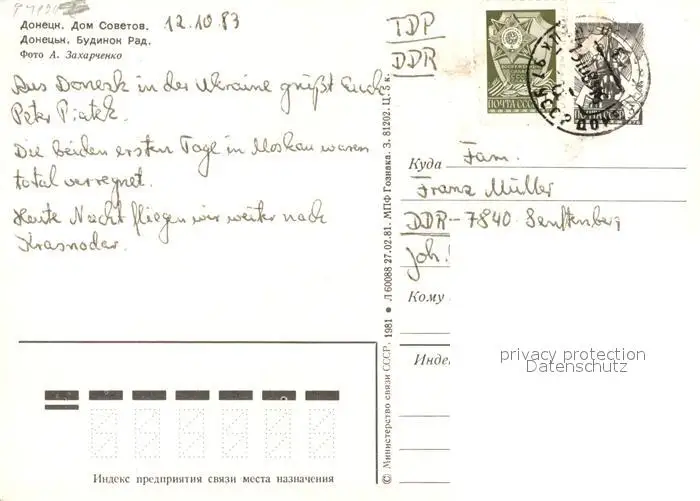 Донецк. Дом Советов.
Донецьк. Будинок Рад.
Фото А. Захарченко
12.10.83
Aus Donezk in der Ukraine grüßt Euch
Peter Piatek.
Die beiden ersten Tage in Moskau waren
total verregnet.
Heute Nacht fliegen wir weiter nach
Krasnodar.
Индекс предприятия связи места назначения
© Министерство связи СССР, 1981 ● Л 60088 27.02.81. МПФ Гознака. З. 81202. Ц. 5 к.
ГДР
DDR
ПОЧТА СССР
Куда Fam.
Franz Müller
DDR-7840 Senftenberg
Joh.
Кому
Индекс
privacy protection
Datenschutz